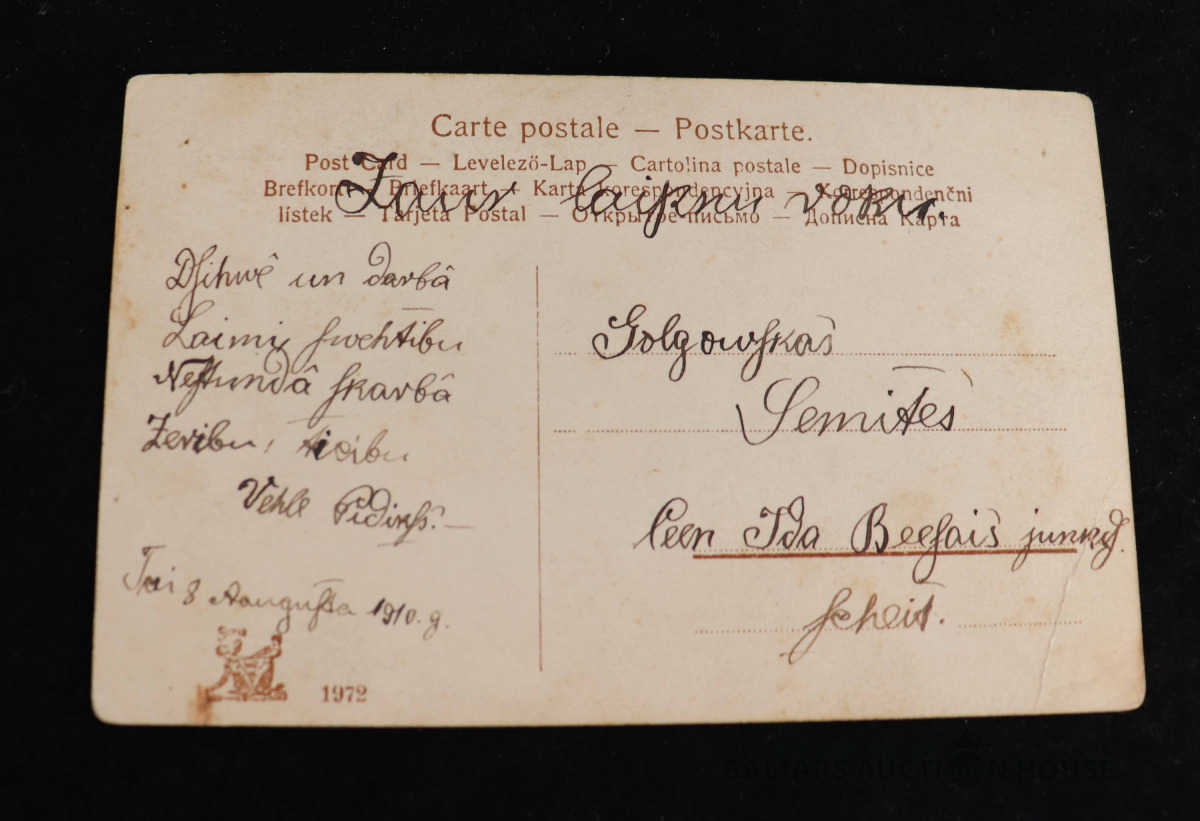 Carte postale — Postkarte.
Post Card — Levelező-Lap — Cartolina postale — Dopisnice
Brefkort — Briefkaart — Karta korespondencyjna — Korrespondenční
lístek — Tarjeta Postal — Открытое письмо — Дописна Карта
Zaur laipnu roku.
Dsihwê un darbâ
Laimi swehtibu
Nestundâ skarbâ
Zeribu, ticibu
Vehle
Tai 8 Aaugusta 1910. g.
1972
Golgowskas
Semitês
Leen Ida Beesais junkdſ.
scheit.
BALTARS AUCTION HOUSE